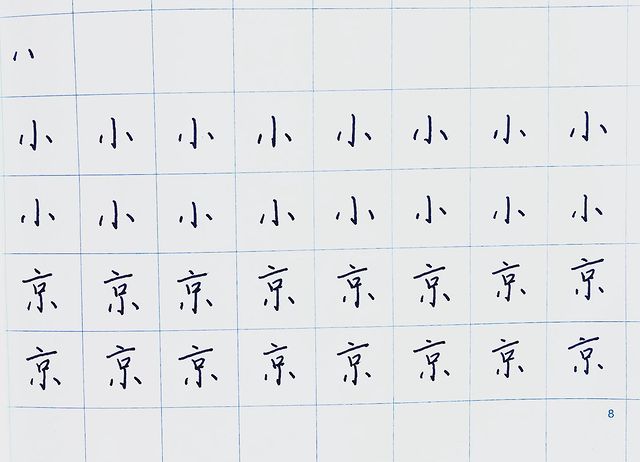 八
小 小 小 小 小 小 小 小
小 小 小 小 小 小 小 小
京 京 京 京 京 京 京 京
京 京 京 京 京 京 京 京
8